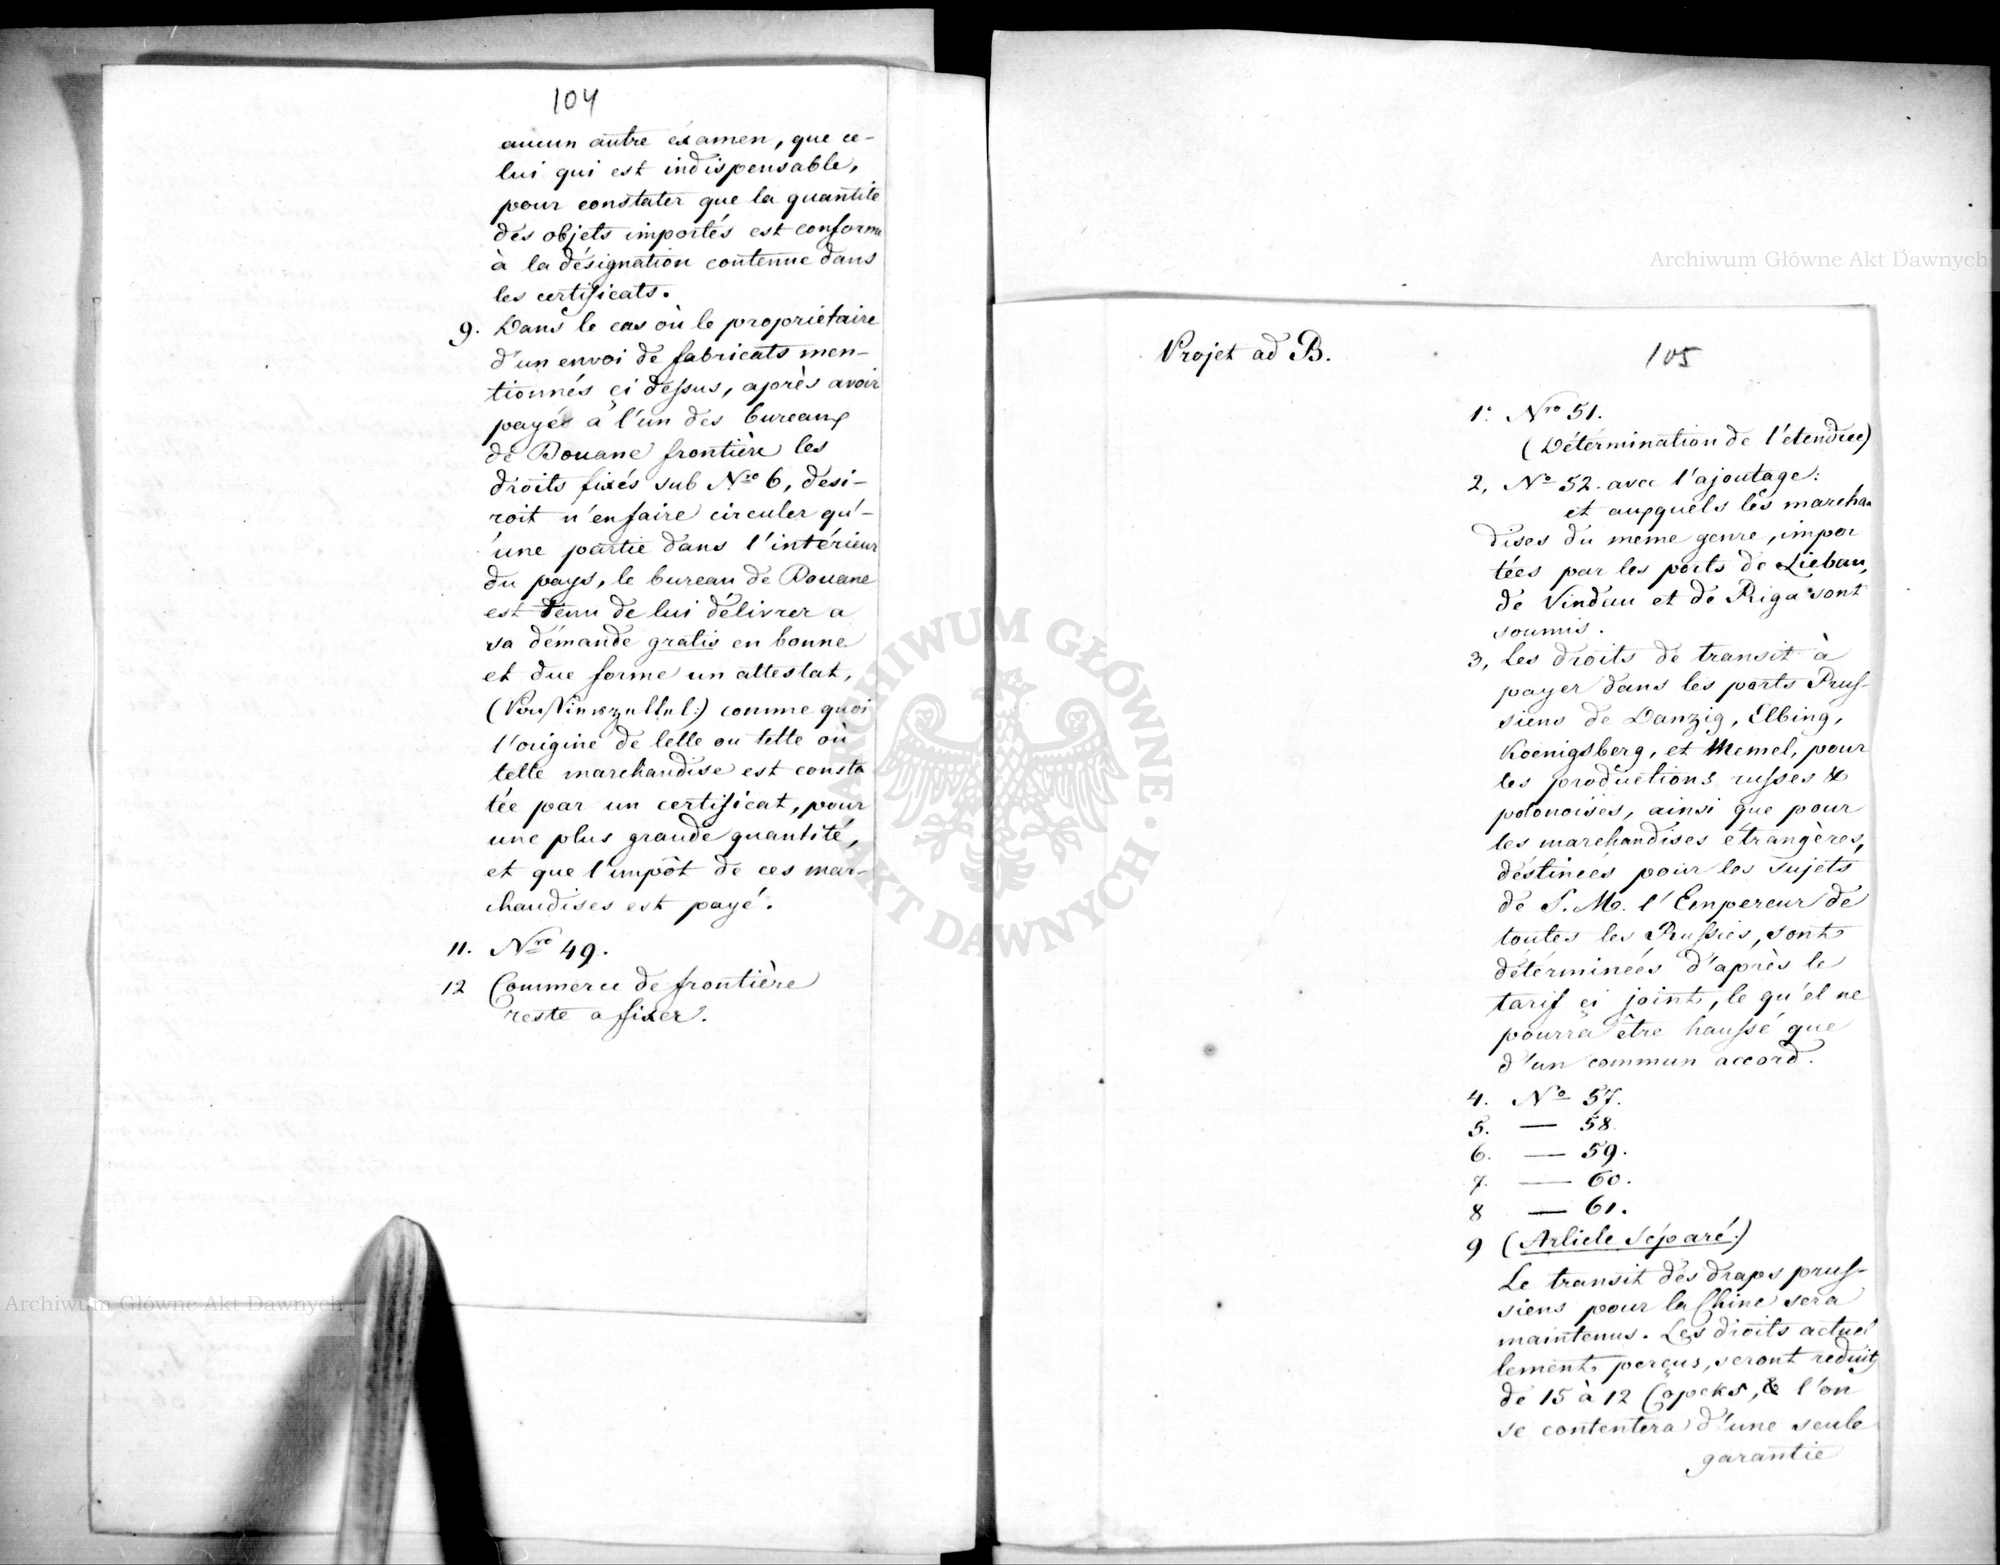 104
aucun autre examen, que ce-
lui qui est indispensable,
pour constater que la quantité
des objets importés est conforme
à la désignation contenue dans
les certificats.
9. Dans le cas où le propriétaire
d'un envoi de fabricats men-
tionnés çi dessus, après avoir
payés à l'un des bureaux
de Douane frontière les
droits fixés sub Nro 6, desi-
roit n'en faire circuler qu'-
une partie dans l'intérieur
du pays, le bureau de Douane
est tenu de lui délivrer a
sa démande gratis en bonne
et due forme un attestat,
comme quoi
l'origine de telle ou telle où
telle marchandise est consta
tée par un certificat, pour
une plus grande quantité,
et que l'impôt de ces mar-
chandises est payé.
11. Nro 49.
12 Commerce de frontière
reste a fixer.
Archiwum Główne Akt Dawnych
ARCHIWUM GŁÓWNE AKT DAWNYCH
Archiwum Główne Akt Dawnych
Projet ad B.
105
1. Nro 51.
(Détermination de l'étendue)
2, No 52. avec l'ajoutage:
et auxquels les marchan
dises du même genre, impor
tées par les ports de Liebau,
de Vindau et de Riga sont
soumis.
3, Les droits de transit à
payer dans les ports Prus-
siens de Danzig, Elbing,
Koenigsberg, et Memel, pour
les productions russes &
polonoises, ainsi que pour
les marchandises étrangères,
déstinées pour les sujets
de S. M. l'Empereur de
toutes les Russies, sont
détérminées d'après le
tarif çi joint, le qu'el ne
pourra être haussé que
d'un commun accord.
4. No 57.
5. — 58.
6. — 59.
7. — 60.
8 — 61.
9 (Article séparé.)
Le transit des draps prus-
siens pour la Chine sera
maintenus. Les droits actuel
lement perçus, seront reduits
de 15 à 12 Copeks, & l'on
se contentera d'une seule
garantie